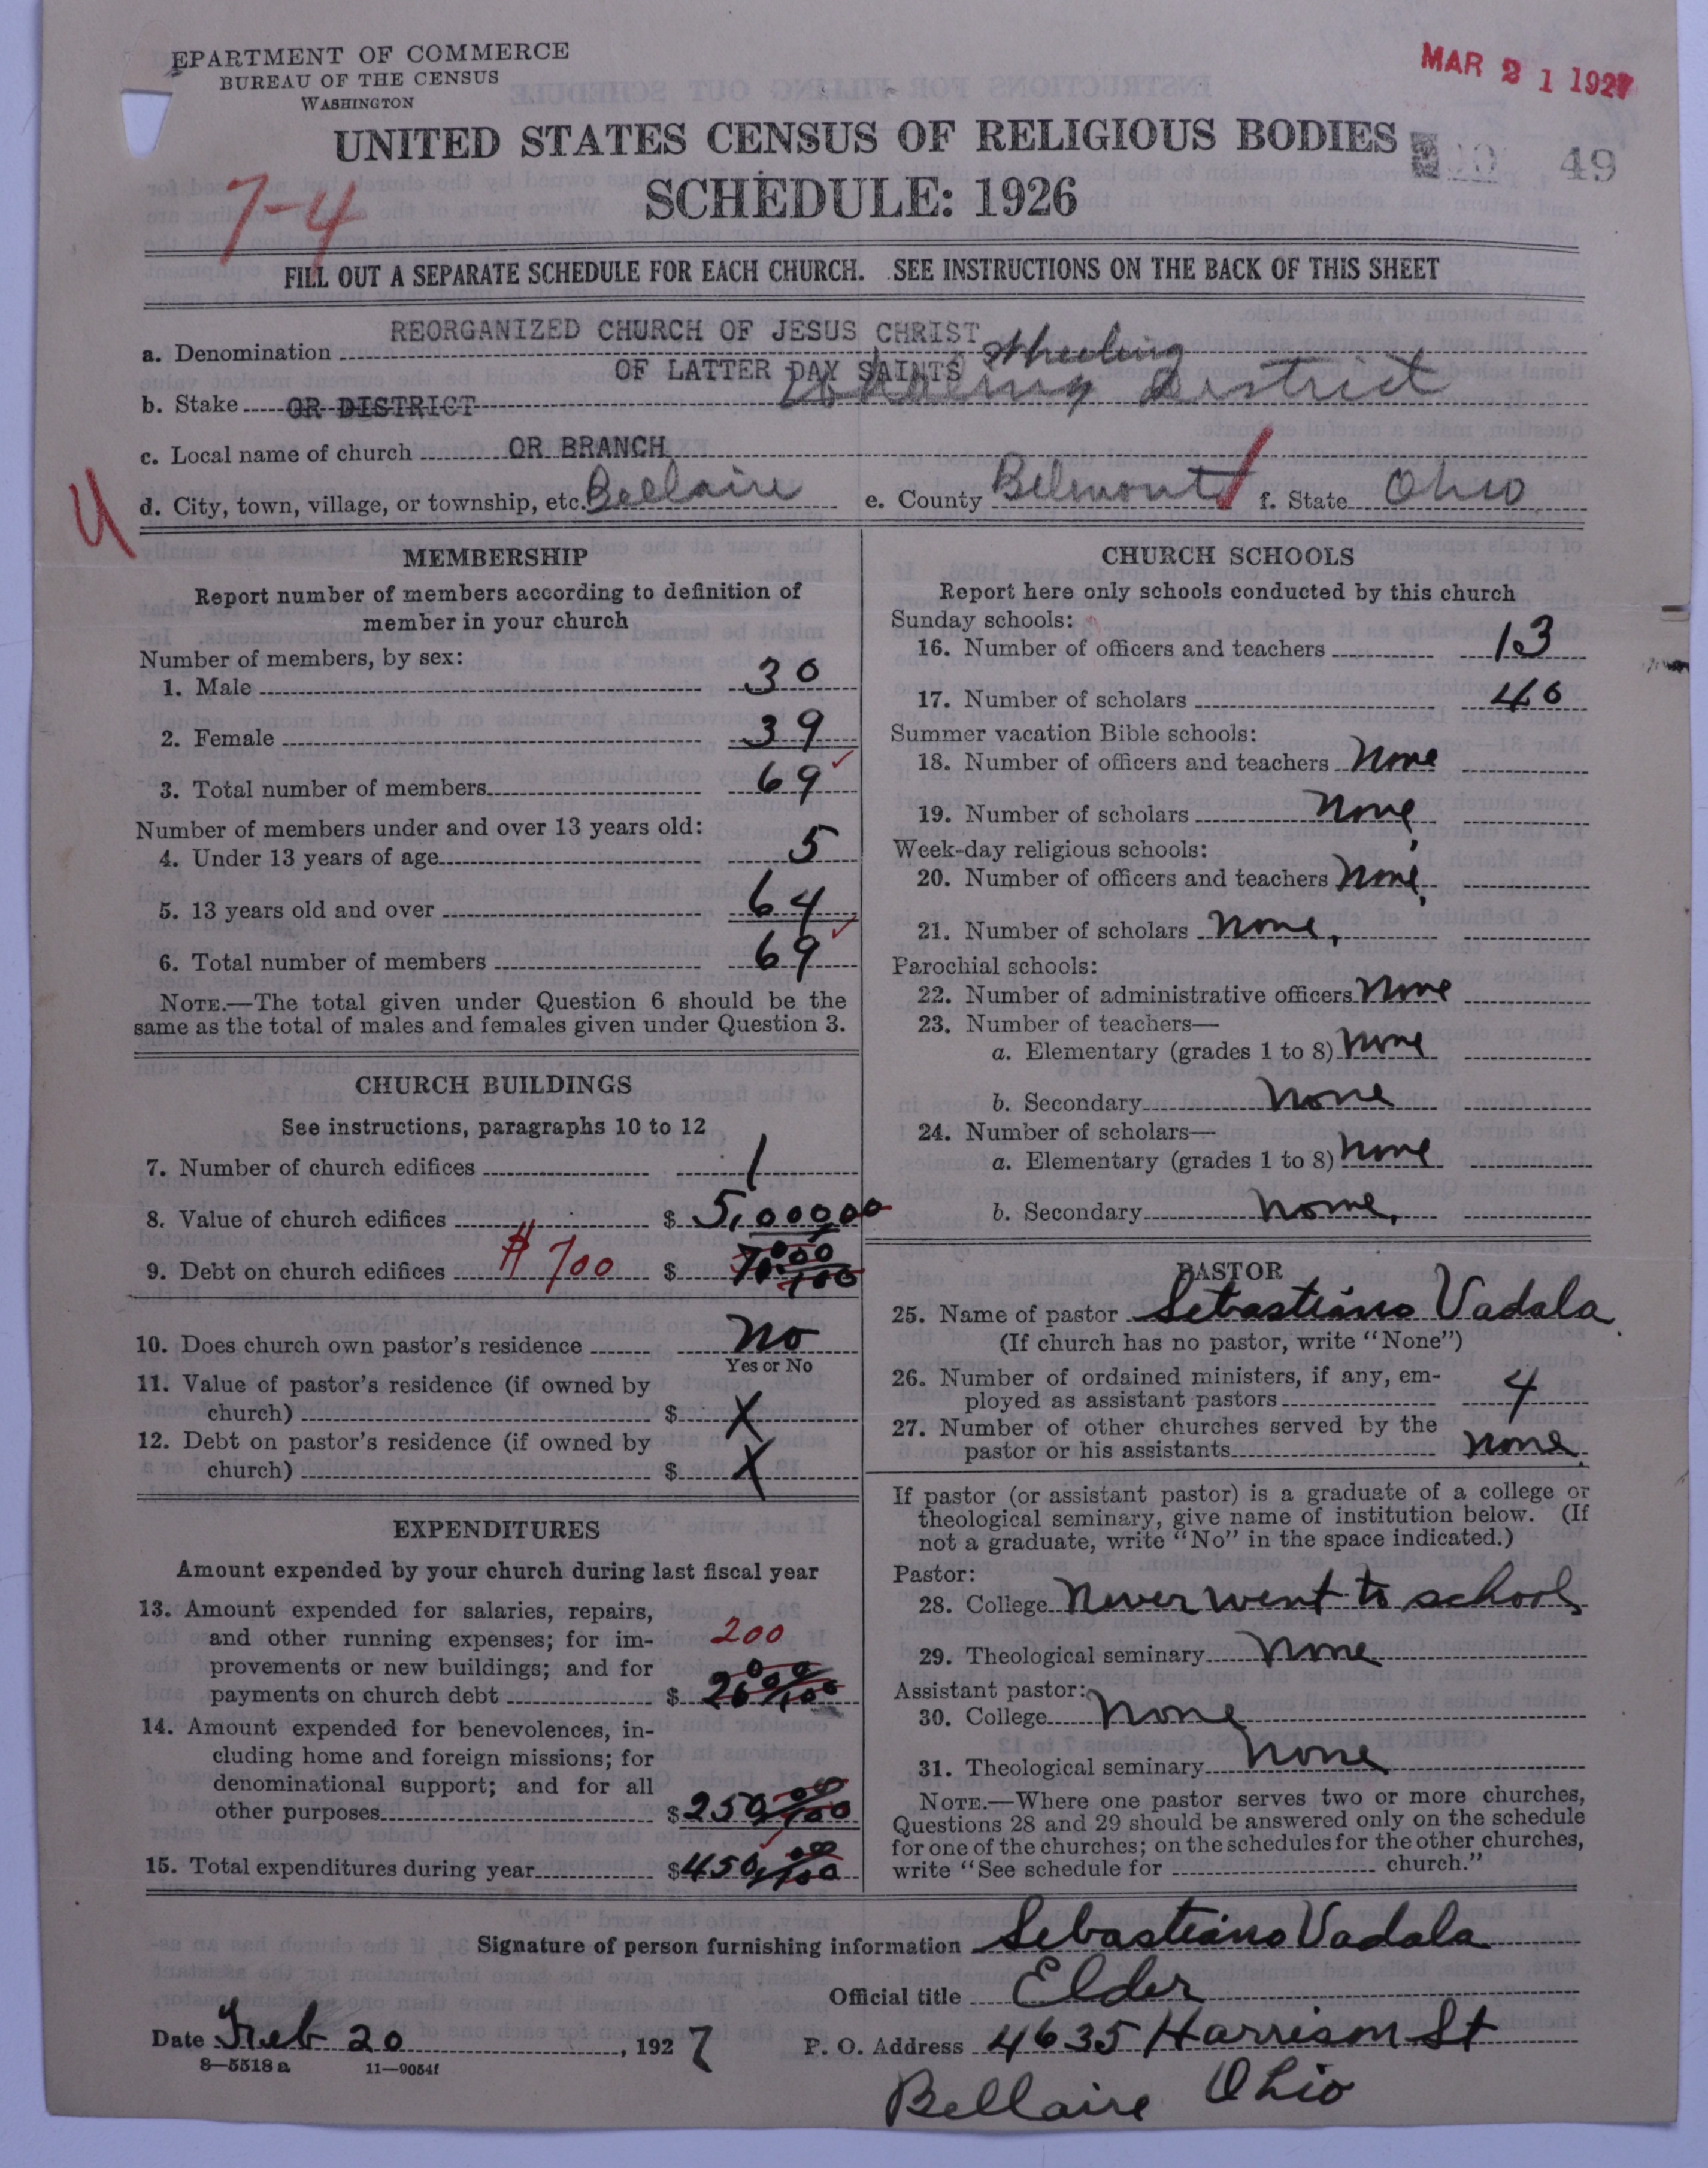 EPARTMENT OF COMMERCE
BUREAU OF THE CENSUS
WASHINGTON
MAR 21 1927
UNITED STATES CENSUS OF RELIGIOUS BODIES
49
SCHEDULE: 1926
7-4
FILL OUT A SEPARATE SCHEDULE FOR EACH CHURCH. SEE INSTRUCTIONS ON THE BACK OF THIS SHEET
REORGANIZED CHURCH OF JESUS CHRIST
a. Denomination
OF LATTER DAY SAINTS Wheeling
b. Stake OR DISTRICT Wheeling District
c. Local name of church OR BRANCH
d. City, town, village, or township, etc. Bellaire e. County Belmont f. State Ohio
4
MEMBERSHIP
Report number of members according to definition of
member in your church
Number of members, by sex:
1. Male 30
2. Female 39
3. Total number of members 69
Number of members under and over 13 years old:
4. Under 13 years of age 5
5. 13 years old and over 64
6. Total number of members 69
NOTE.—The total given under Question 6 should be the
same as the total of males and females given under Question 3.
CHURCH BUILDINGS
See instructions, paragraphs 10 to 12
7. Number of church edifices 1
8. Value of church edifices $ 5,000 00
9. Debt on church edifices $700 $
10. Does church own pastor's residence No
Yes or No
11. Value of pastor's residence (if owned by
church) $ X
12. Debt on pastor's residence (if owned by
church) $ X
EXPENDITURES
Amount expended by your church during last fiscal year
13. Amount expended for salaries, repairs,
and other running expenses; for im- 200
provements or new buildings; and for
payments on church debt $ 200 00/100
14. Amount expended for benevolences, in-
cluding home and foreign missions; for
denominational support; and for all
other purposes $ 250 00/100
15. Total expenditures during year $ 450 00/100
CHURCH SCHOOLS
Report here only schools conducted by this church
Sunday schools:
16. Number of officers and teachers 13
17. Number of scholars 40
Summer vacation Bible schools:
18. Number of officers and teachers None
19. Number of scholars None
Week-day religious schools:
20. Number of officers and teachers None
21. Number of scholars None.
Parochial schools:
22. Number of administrative officers None
23. Number of teachers—
a. Elementary (grades 1 to 8) None
b. Secondary None
24. Number of scholars—
a. Elementary (grades 1 to 8) None
b. Secondary None.
PASTOR
25. Name of pastor Sebastiano Vadala.
(If church has no pastor, write "None")
26. Number of ordained ministers, if any, em-
ployed as assistant pastors 4
27. Number of other churches served by the
pastor or his assistants None.
If pastor (or assistant pastor) is a graduate of a college or
theological seminary, give name of institution below. (If
not a graduate, write "No" in the space indicated.)
Pastor:
28. College Never went to school
29. Theological seminary None
Assistant pastor:
30. College None
31. Theological seminary None
NOTE.—Where one pastor serves two or more churches,
Questions 28 and 29 should be answered only on the schedule
for one of the churches; on the schedules for the other churches,
write "See schedule for church."
Signature of person furnishing information Sebastiano Vadala
Official title Elder
Date Feb 20, 1927 P. O. Address 4635 Harrison St
8—5518a 11—9054f
Bellaire Ohio